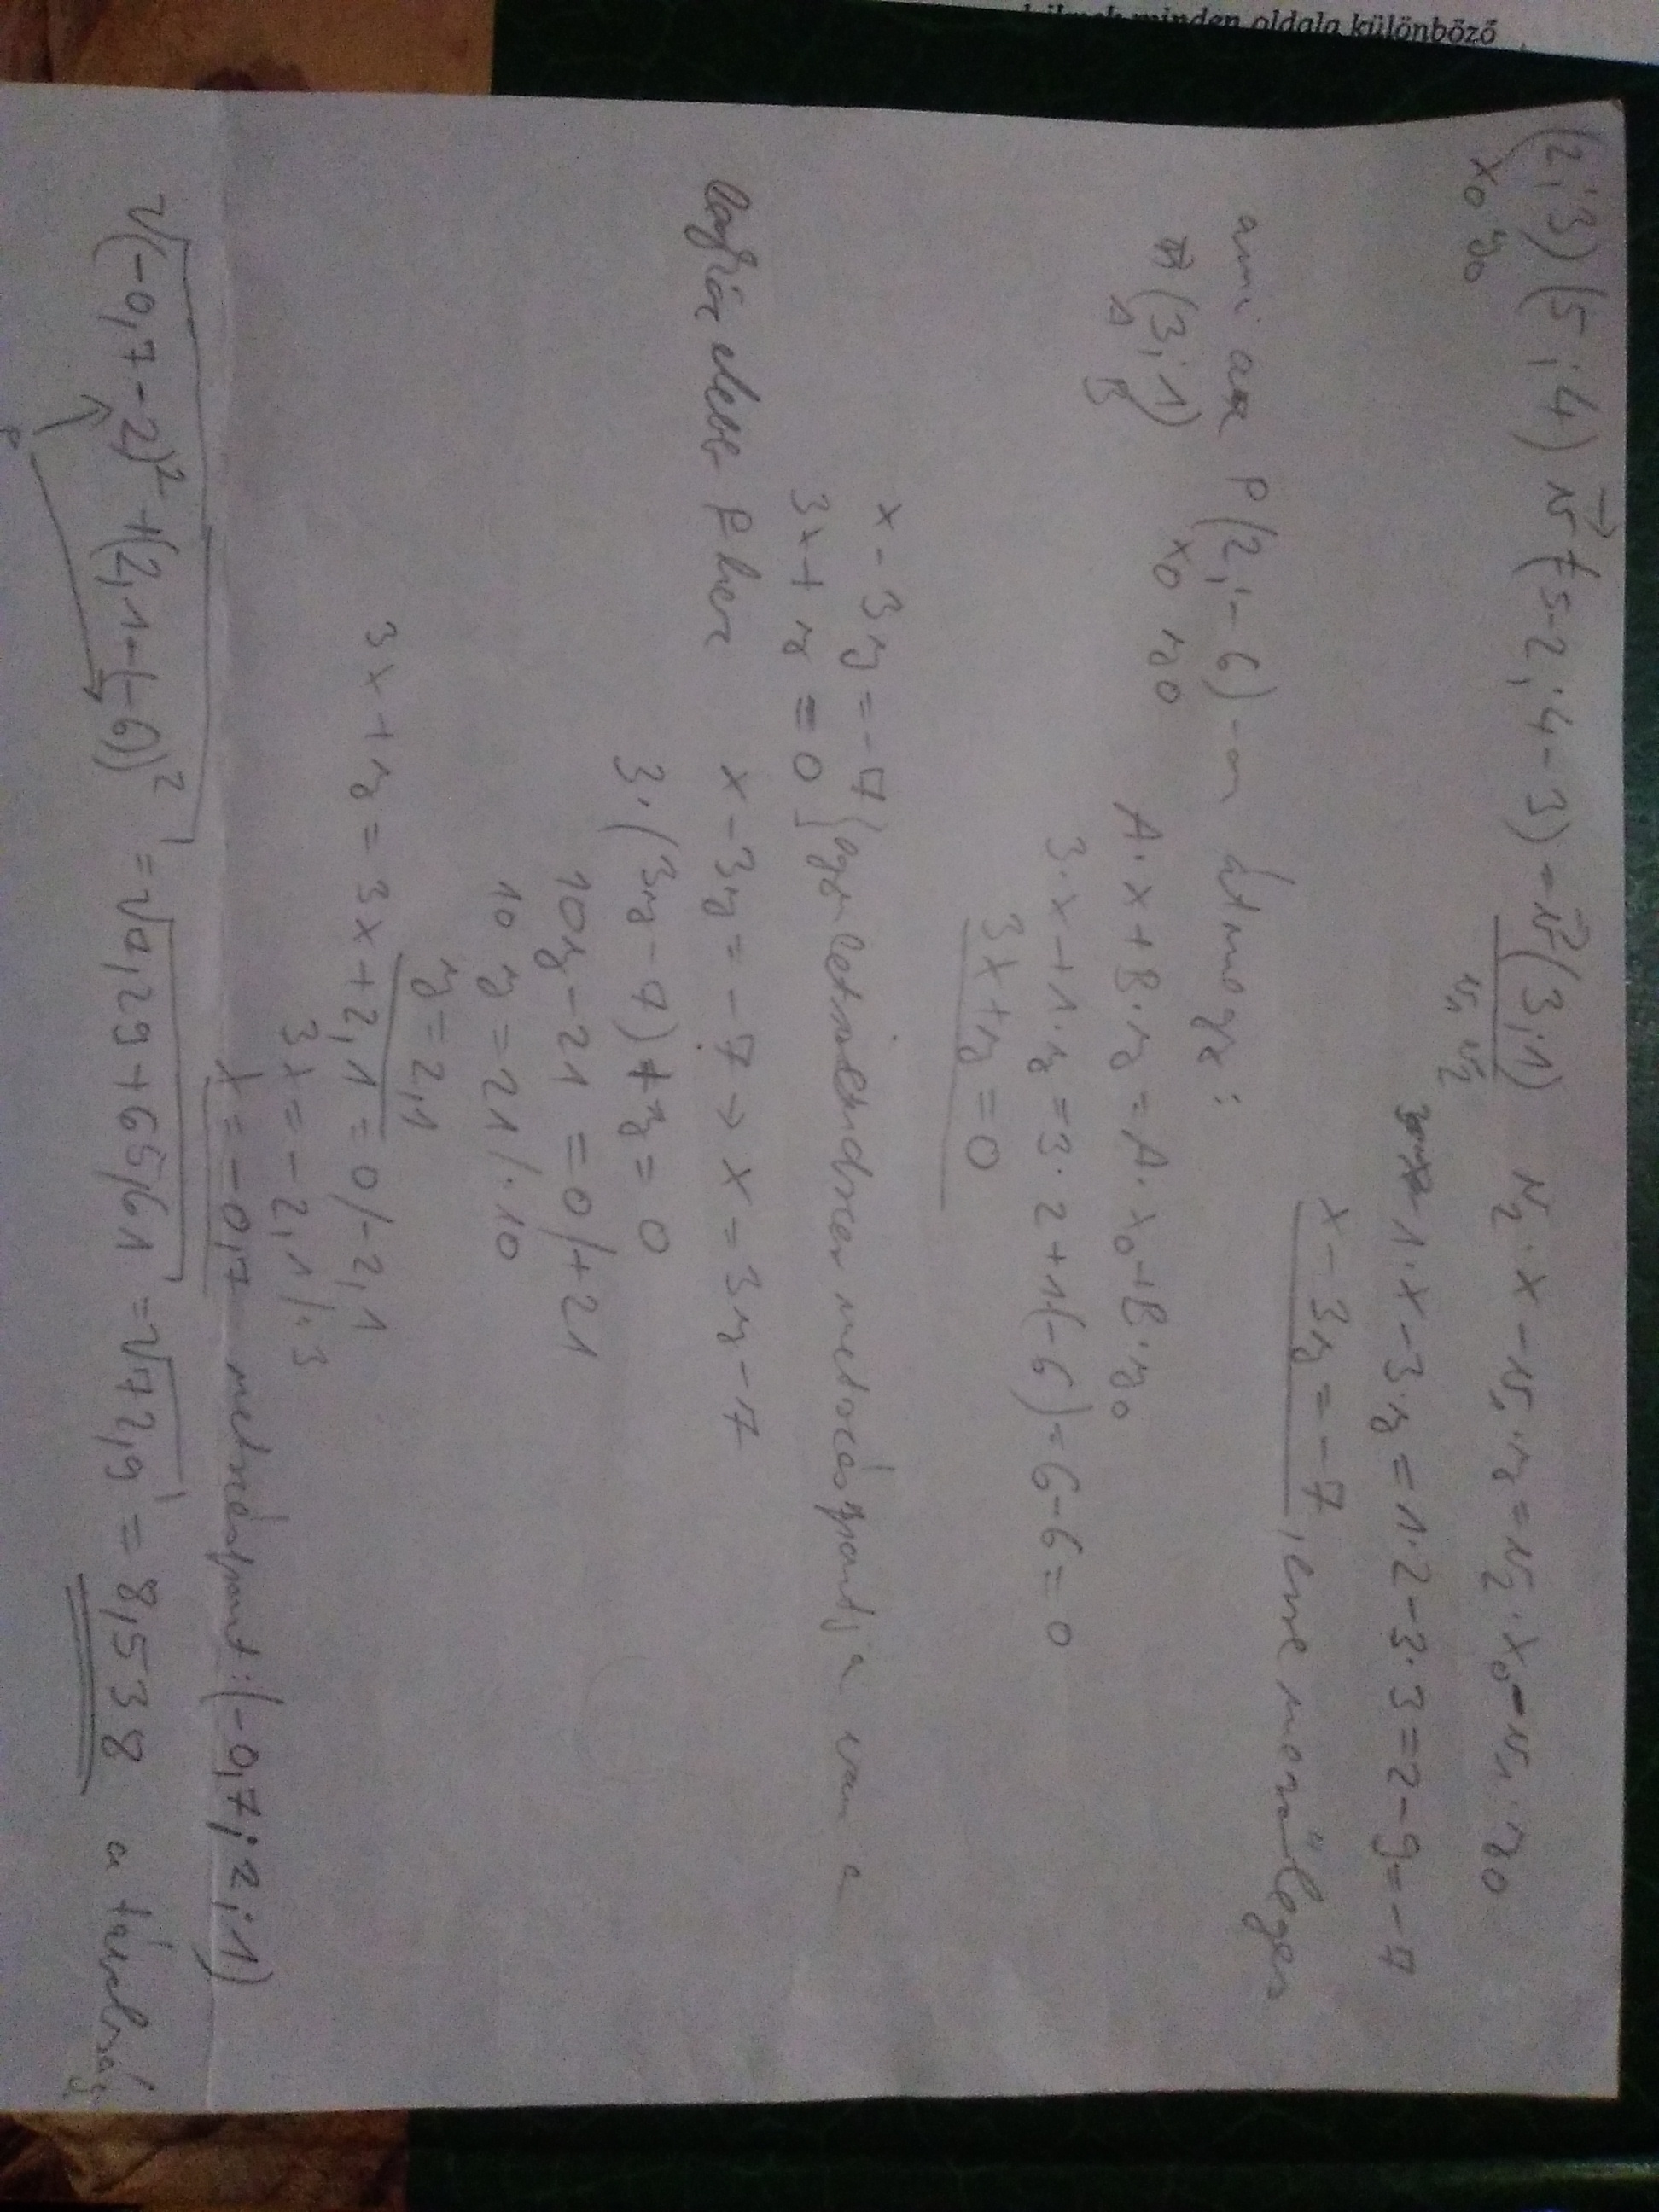 minden oldala különböző
(2;3) (5;4) v⃗ (5-2;4-3) = v⃗ (3;1) v₂·x - v₁·y = v₂·x₀ - v₁·y₀
x₀ y₀ v₁ v₂
1·x - 3·y = 1·2 - 3·3 = 2 - 9 = -7
x - 3y = -7, erre merőleges
ami a P(2;-6)-n átmegy:
x₀ y₀
(3;1) A·x + B·y = A·x₀ + B·y₀
A B
3·x + 1·y = 3·2 + 1(-6) = 6 - 6 = 0
3x + y = 0
x - 3y = -7
3x + y = 0 } egyeletrendszer metszéspontja van a
legközelebb P hez x - 3y = -7 → x = 3y - 7
3·(3y - 7) + y = 0
10y - 21 = 0 /+21
10y = 21 /:10
y = 2,1
3x + y = 3x + 2,1 = 0 /-2,1
3x = -2,1 /:3
x = -0,7 metszéspont: (-0,7; 2,1)
√(-0,7 - 2)² + (2,1 - (-6))² = √7,29 + 65,61 = √72,9 = 8,538 a távolság
P